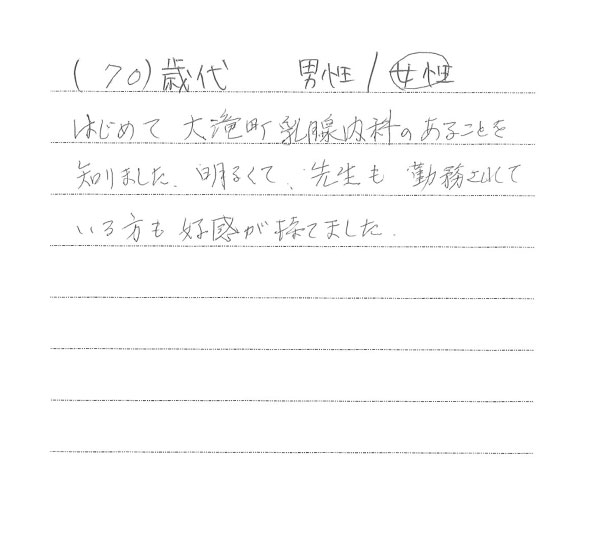 (70)歳代 男性 / 女性
はじめて 大滝町乳腺内科のあることを
知りました。明るくて、先生も 勤務されて
いる方も 好感が持てました。